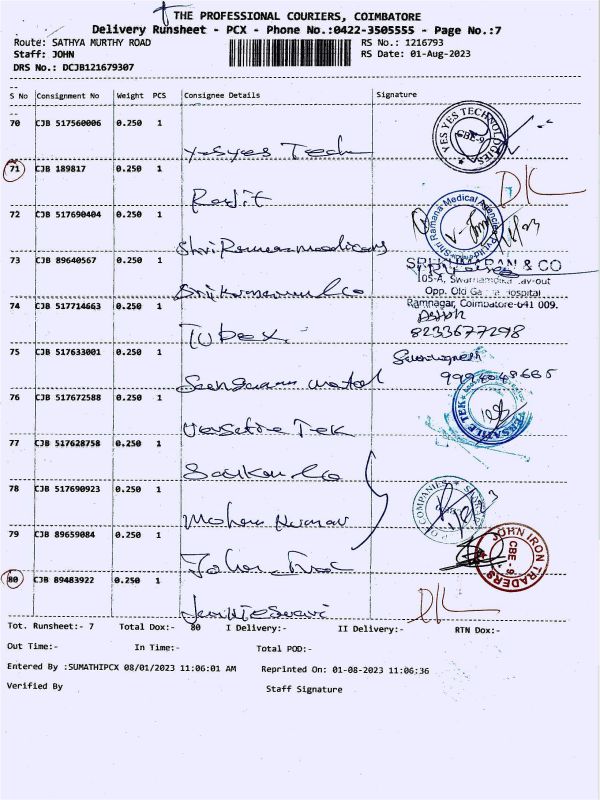 THE PROFESSIONAL COURIERS, COIMBATORE
Delivery Runsheet - PCX - Phone No.:0422-3505555 - Page No.:7
Route: SATHYA MURTHY ROAD RS No.: 1216793
Staff: JOHN RS Date: 01-Aug-2023
DRS No.: DCJB121679307
S No Consignment No Weight PCS Consignee Details Signature
70 CJB 517560006 0.250 1
Yesyes Tech
YES YES TECHNOLOGIES CBE-9
71 CJB 189817 0.250 1
DL
72 CJB 517690404 0.250 1
Shri Ramana Medical Agencies
73 CJB 89640567 0.250 1
SRI KUMARAN & CO
Opp. Old
Hospital
Ramnagar, Coimbatore-641 009.
74 CJB 517714663 0.250 1
Tubex
8233677298
75 CJB 517633001 0.250 1
76 CJB 517672588 0.250 1
Versatile Tek
VERSATILE TEK
77 CJB 517628758 0.250 1
78 CJB 517690923 0.250 1
Mohan Kumar
COMPANIES
79 CJB 89659084 0.250 1
JOHN IRON TRADERS CBE - 9
80 CJB 89483922 0.250 1
DL
Tot. Runsheet:- 7 Total Dox:- 80 I Delivery:- II Delivery:- RTN Dox:-
Out Time:- In Time:- Total POD:-
Entered By :SUMATHIPCX 08/01/2023 11:06:01 AM Reprinted On: 01-08-2023 11:06:36
Verified By Staff Signature